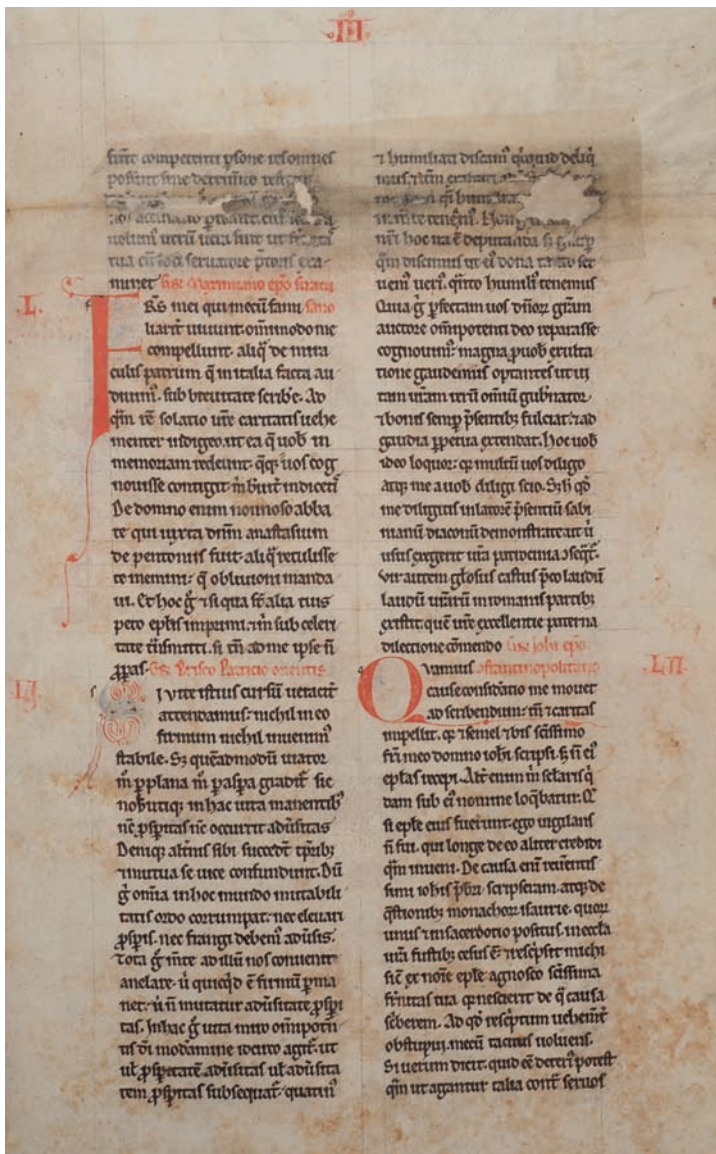 III
sint competenti psone ut omnes
possint sine
uolum̄ uerū uera sint ut fr̄
tua cū loci seruatore p̄toris exa
minet Gḡ Maximiano ep̄o siracu
L. FRs mei qui mecū fami sano
liarit̄ uiuunt. om̄imodo me
compellunt. aliq̄ de mira
culis patrum q̄ in italia facta au
diuim᷒. sub breuitate scribe᷑. Ad
q̄m rē solatio ur̄e caritatis uehe
menter indigeo. ut ea q̄ uob̄ in
memoriam redeunt. q̄q; uos cog
nouisse contigit. m̄ breuit̄ indicetis
De domno enim nonnoso abba
te qui iuxta dōm anastasium
de pentomis fuit. aliq̄ retulisse
te memini. q̄ obliuioni manda
ui. Et hoc ḡ ⁊ si qua st̄ alia tuis
peto ep̄lis imprimi. ⁊ m̄ sub celeri
tate t̄nsmitti. si t̄n ad me ipse n̄
p̄pas. Gḡ Prisco Patricio orientis
LI. SI uite istius cursū ueracit̄
attendamus. nichil in eo
firmum nichil inuenim᷒
stabile. Sꝫ quēadmodū uiator
m̄ p̄ plana m̄ p̄ aspa gradit᷑. sic
nob̄ utiq; in hac uita manentib᷒
nc̄ ꝓspitas nc̄ occurrit adūsitas
Deniq; alt̄nis sibi succedt̄ tp̄rib;
⁊ mutua se uice confundunt. Dū
ḡ om̄ia in hoc mundo mutabili
tatis ordo corrumpat. nec eleuari
ꝓspis. nec frangi debem᷒ adūsis.
Tota ḡ m̄te ad illū nos conuenit
anelare. u̇ quicq̇d ē firmū pma
net. u̇ n̄ mutatur adūsitate ꝓspi
tas. In hac ḡ uita miro om̄ipotn̄
tis dī modamine idcirco agit᷑. ut
ul̄ ꝓspitatē adūsitas ul̄ adūsita
tem ꝓspitas subsequat᷑. quatin᷒
⁊ humiliati discam᷒ q̇cquid deliq̇
mus. ⁊
q̄ hu
Hon
ur̄i hoc ira ē deputanda sꝫ gr̄a. ꝑ
q̄m discimus ut ei᷒ dona tanto ser
uem᷒ ueri᷒. q̇nto humili᷒ tenemus
Quia ḡ pfectam uos dn̄or gr̄am
auctore om̄ipotenti deo reparasse
cognouim᷒. magna ꝓ uob̄ exulta
tione gaudemus optantes ut ui
tam ur̄am rerū om̄iū gub̄nator.
⁊ bonis semp p̄sentib; fulciat. ⁊ ad
gaudia ppetua extendat. Hoc uob̄
ideo loquor. q; multū uos diligo
atq; me a uob̄ diligi scio. Sꝫ h̄ qd̄
me diligitis in latorē p̄sentiū sabi
nianū diaconū demonstrate. ut u̇
usus exegerit ur̄a patrocinia ↄseq̄t᷑.
Vir autem gl̄osus castus p̄co laudiū
laudū ur̄arū in romanis partib;
extitit. quē ur̄e excellentie paterna
dilectione cōmendo Gḡ iohi ep̄o
LII. Quamuis ↄstantinopolitano
cause consid̄atio me mouet
ad scribendum. tn̄ ⁊ caritas
impellit. q; ⁊ semel ⁊ bis scīssimo
fr̄i meo domno iohi scripsi. sꝫ n̄ ei᷒
ep̄las recepi. Alt̄ enim m̄ sc̄laris q̇
dam sub ei᷒ nomine loq̄batur. Q
si ep̄le eius fuerunt. ego uigilans
n̄ fui. qui longe de eo aliter credidi
q̄m inueni. De causa eni᷒ reuerentis
simi iohis p̄b̄ri scripseram. atq; de
q̄stionib; monachoꝝ isaurie. quoꝝ
unus ⁊ in sacerdotio positus. in eccl̄a
ur̄a fustib; cesus ē. ⁊ resc̄psit michi
sic̄ ex noīe ep̄le agnosco scīssima
fr̄nitas tua q; nescierit de q̄ causa
sc̄berem. Ad qd̄ resc̄ptum uehem̄t̄
obstupui. mecū tacitus uoluens.
Si uerum dicit. quid eē deteri᷒ potest
q̄m ut agantur talia contr̄ seruos